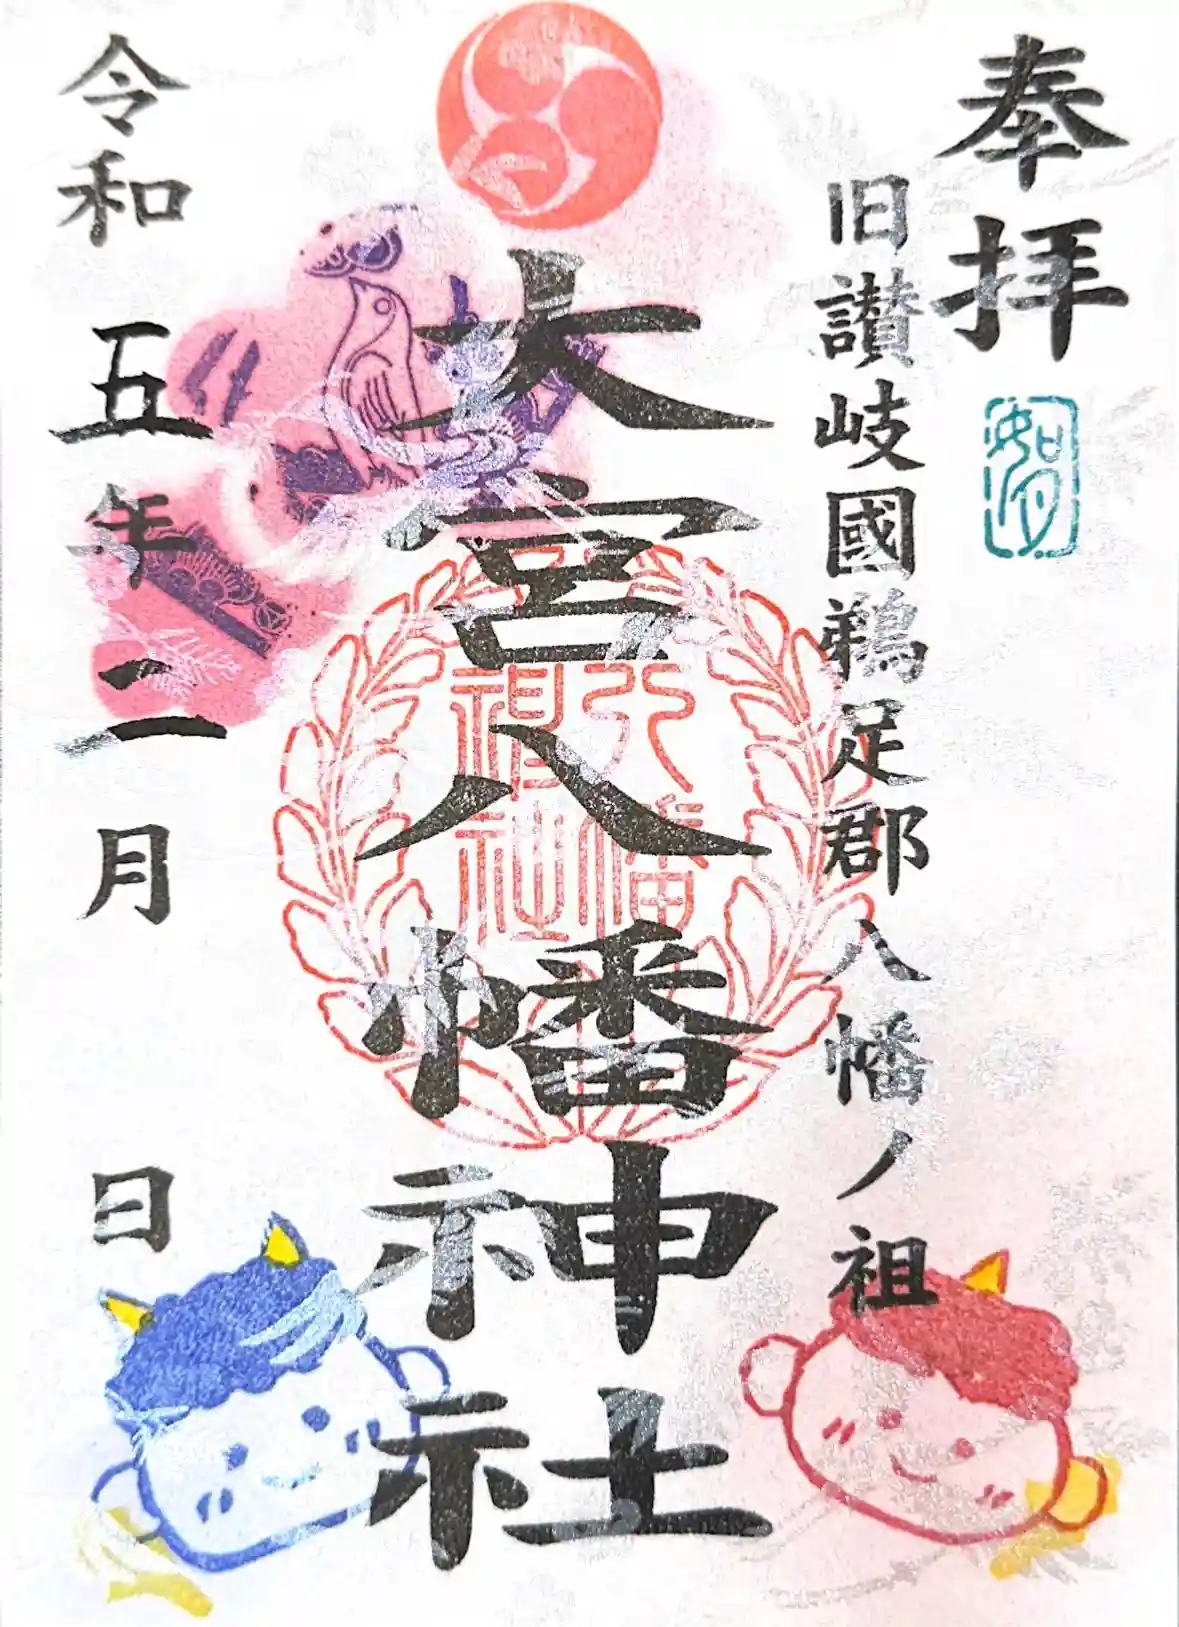 奉拝
如月
旧讃岐國鵜足郡八幡ノ祖
大宮八幡神社
八幡
祖社
令和五年二月 日